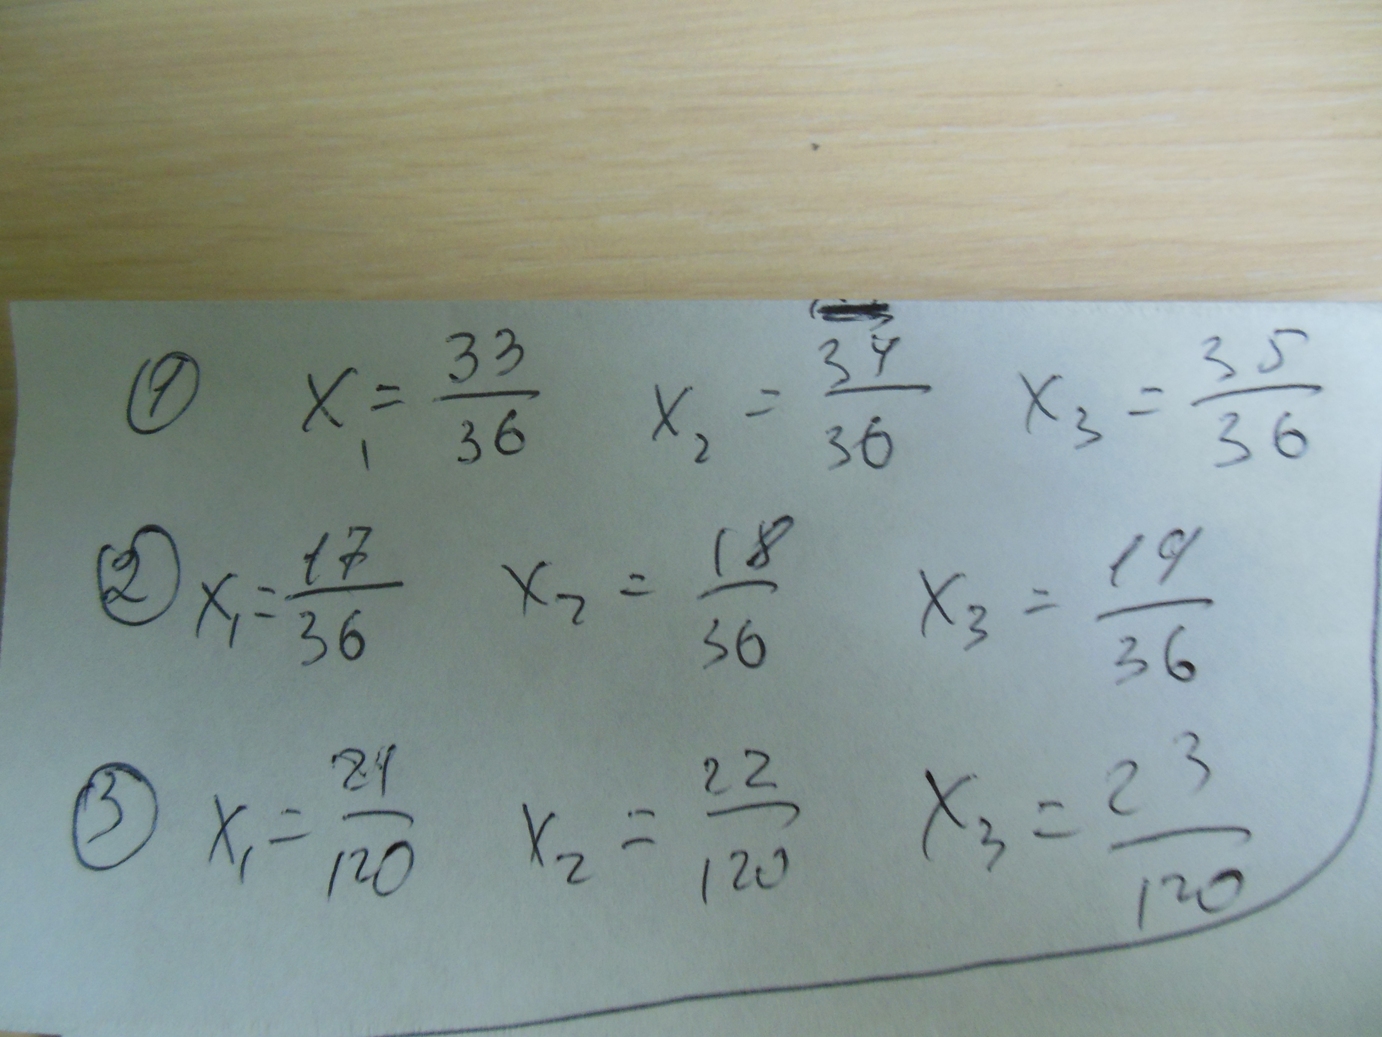 ① X₁ = 33/36 X₂ = 34/36 X₃ = 35/36
② X₁ = 17/36 X₂ = 18/36 X₃ = 19/36
③ X₁ = 21/120 X₂ = 22/120 X₃ = 23/120